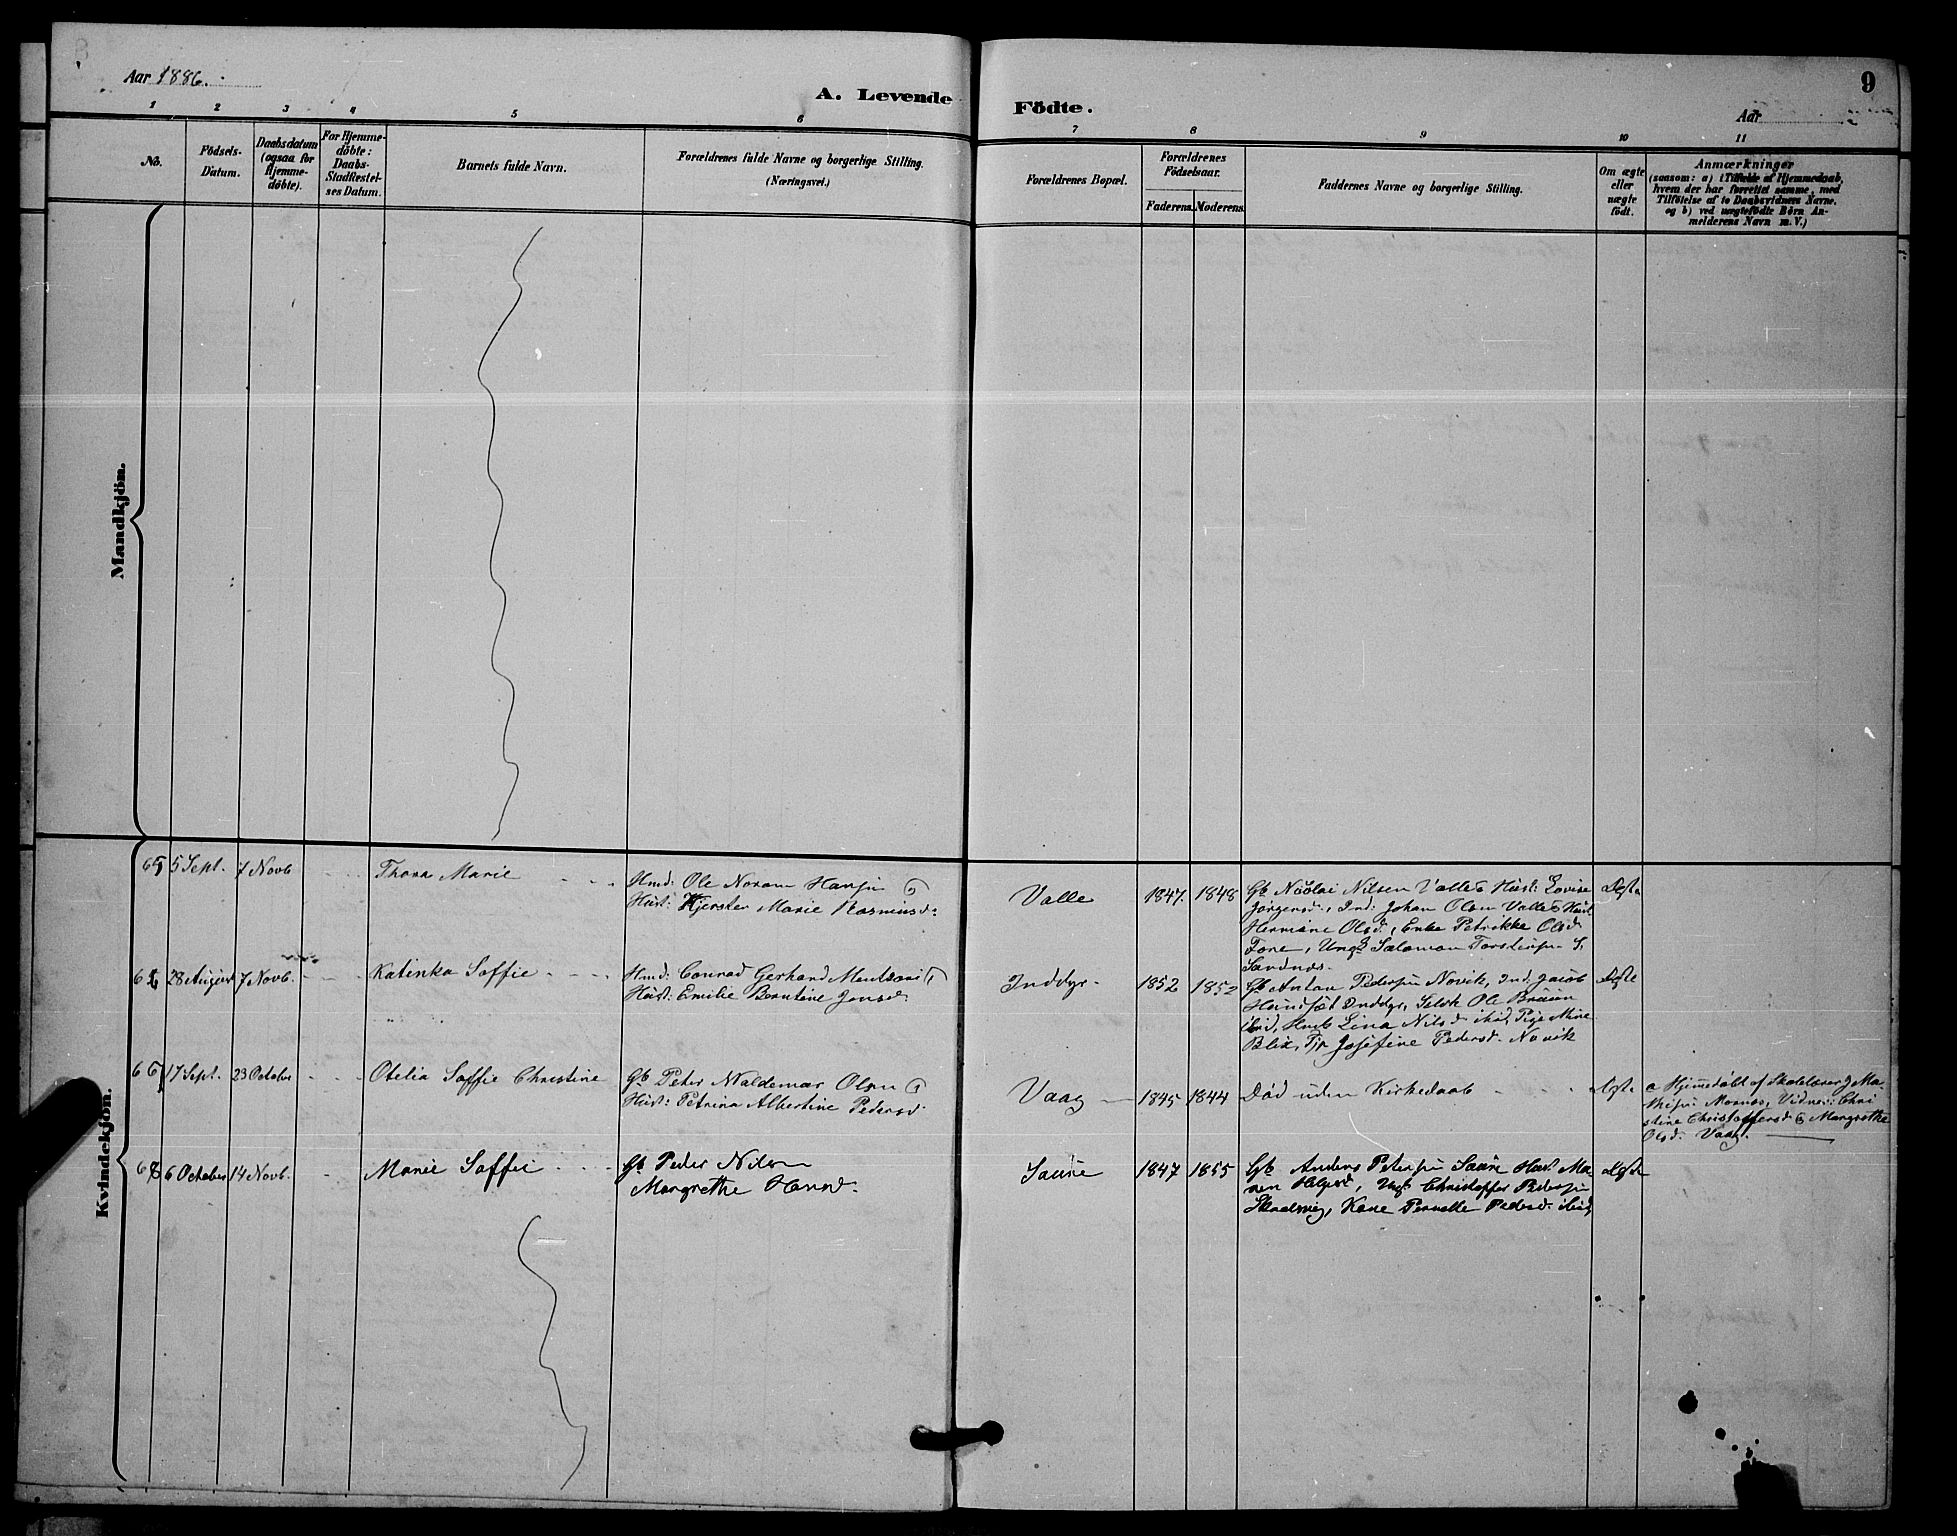 Aar 1886.
A. Levende Födte.
9
Aar
1 2 3 4 5 6 7 8 9 10 11
No.
Födsels-
Datum.
Daabsdatum
(ogsaa for
Hjemme-
döbte).
For Hjemme-
döbte:
Daabs-
Stadfestel-
ses Datum.
Barnets fulde Navn.
Forældrenes fulde Navne og borgerlige Stilling.
(Næringsvei.)
Forældrenes Bopæl.
Forældrenes
Födselsaar.
Faderens. Moderens.
Faddernes Navne og borgerlige Stilling.
Om ægte
eller
uægte
födt.
Anmærkninger
(saasom: a) i Tilfælde af Hjemmedaab,
hvem der har forrettet samme, med
Tilföielse af to Daabsvidners Navne.
og b) ved uægtefödte Börn An-
melderens Navn m. V.)
Mandkjön.
Kvindekjön.
65 5 Sept. 7 Novb
Thora Marie
Ind: Ole Noram Hansen
Hust: Kjersten Marie Rasmusd:
Valle
1847. 1848
Gb Nicolai Nilsen Valle & Hust: Lovise
Jørgensd., Ind: Johan Olsen Valle & Hust
Hermine Olsd., Enke Petrikke Olsd
Fore, Ungk Salomon Torstensen S.
Sandnes.
Ægte
66 28 August 7 Novb.
Katinka Soffie
Ind: Conrad Gerhard Mentsoni
Hust: Emilie Berntine Jensd
Inddyr
1852 1852
Gb Anton Pedersen Novik, Ind: Jacob
Inddyr, Selvk Ole Bruun
ibid, Hust Lina Nilsd ibid, Pige Mine
Blix, Tjp Josefine Pedersd. Novik
Ægte
67 17 Sept. 23 October
Otelia Soffie Christine
Gb Peter Waldemar Olsen
Hust: Petrina Albertine Pedersd.
Vaag
1845 1844
Død uden Kirkedaab
Ægte
a Hjemedøbt af Skolelærer J Ma-
thisen Mornes, Vidner: Chri
stine Christoffersd & Margrethe
Olsd. Vaag.
68 6 October 14 Novb.
Marie Soffie
Gb Peder Nilsen
Margrethe Hansd.
Saure
1847 1855
Gb Anders Petersen Saure Hust Ma-
ren Helgesd, Ungk Christoffer Pedersen
Skaalsvig, Kone Pernelle Pedersd. ibid,
Ægte